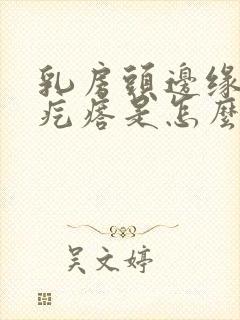 乳房頭邊缘
疙瘩是怎麼
吴文婷